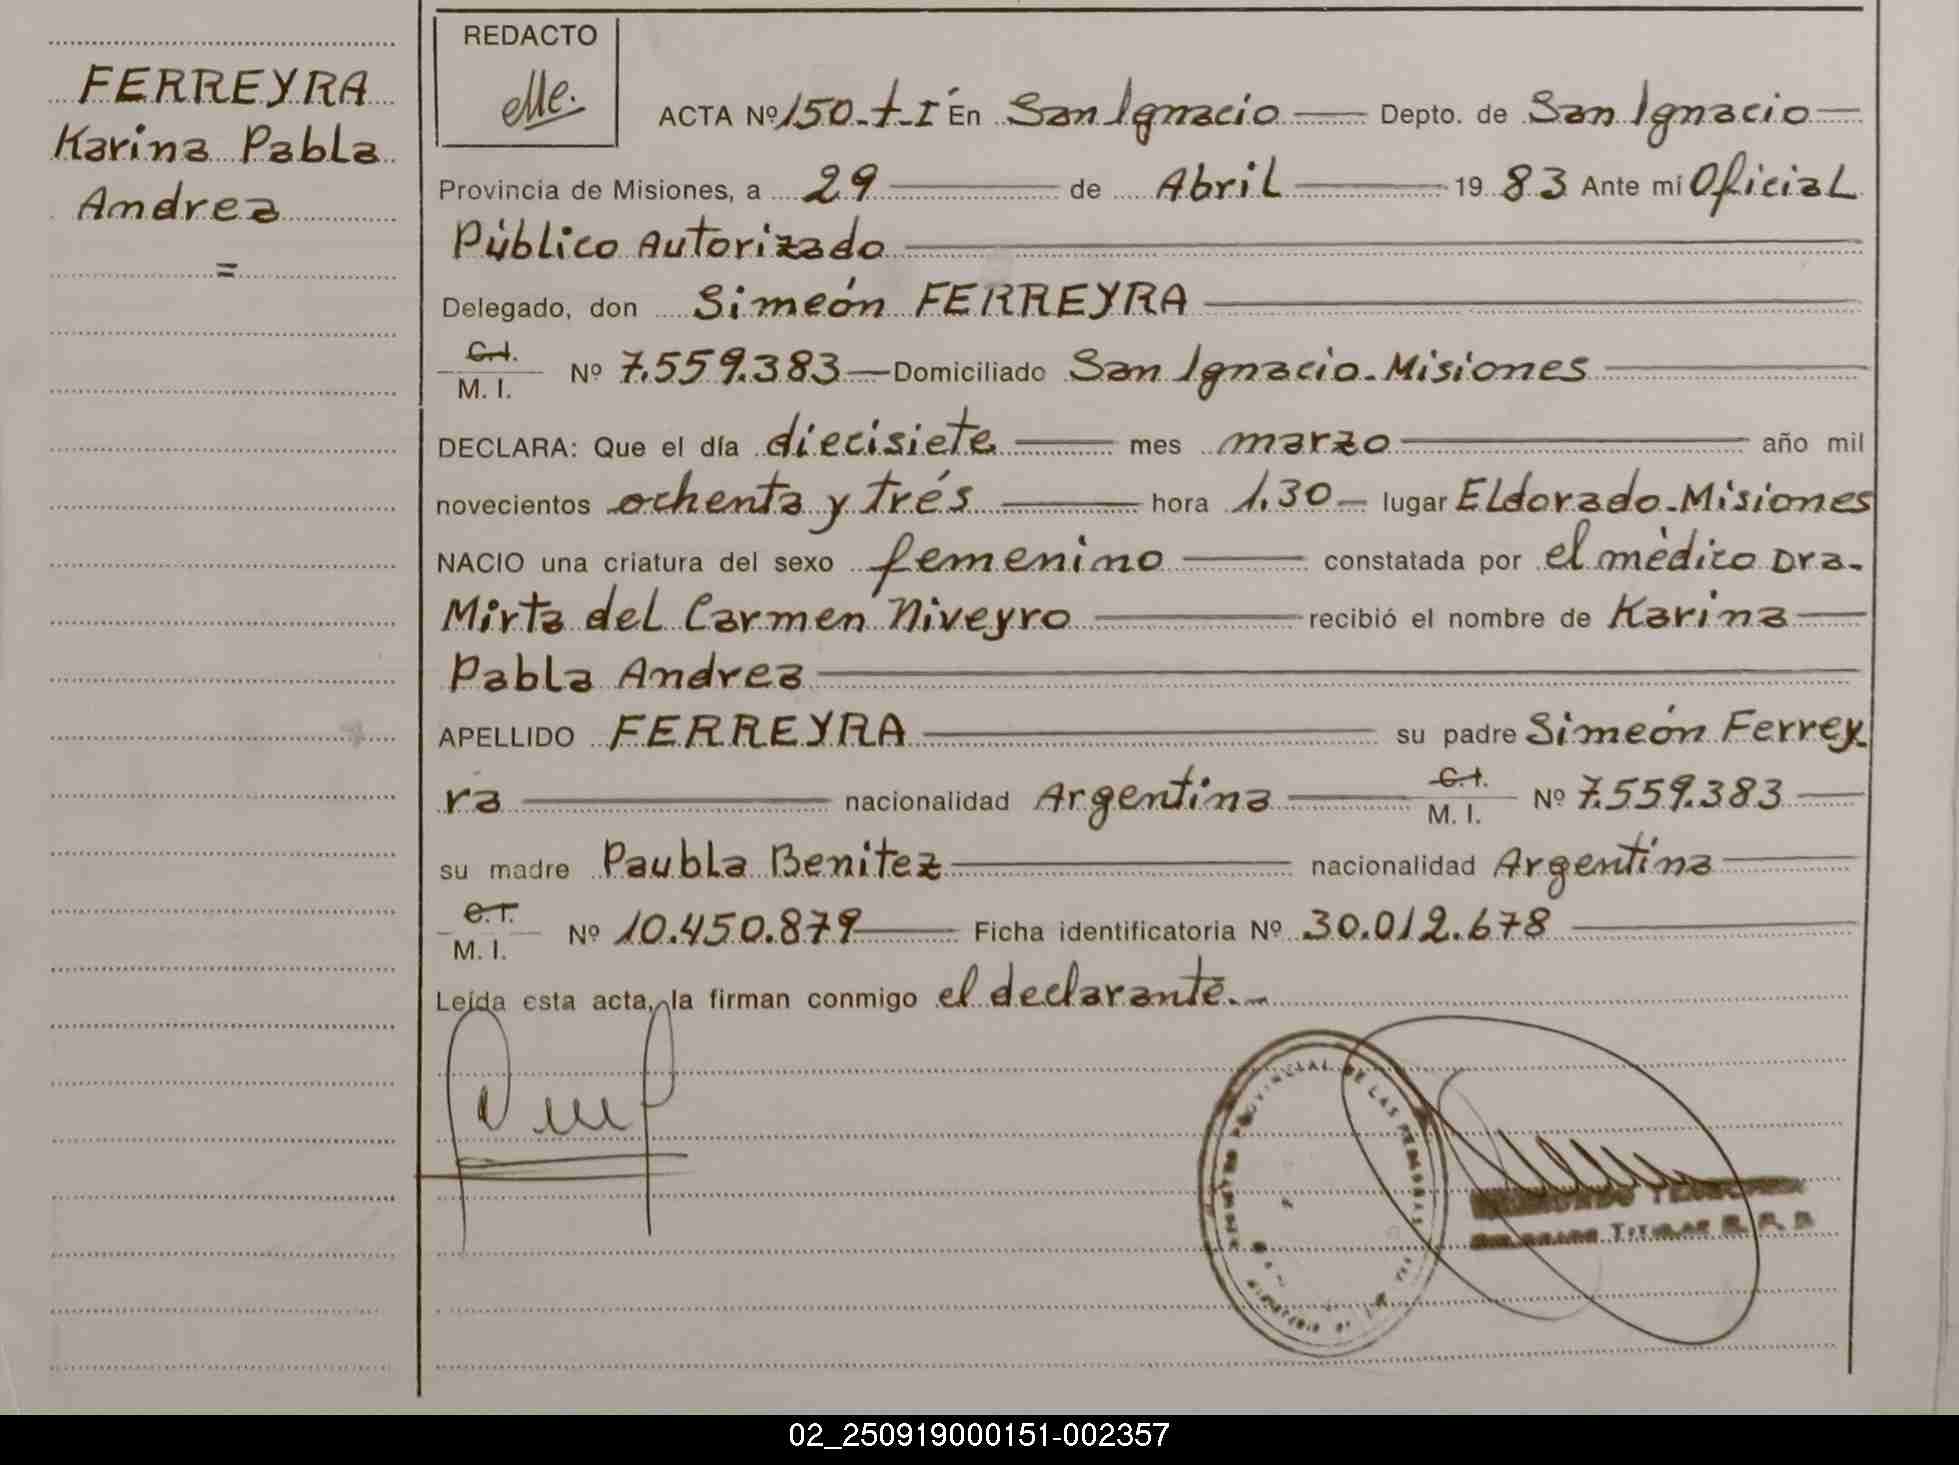 FERREYRA
Karina Pabla
Andrea
=
REDACTO
ACTA Nº 150-t-I En San Ignacio Depto. de San Ignacio
Provincia de Misiones, a 29 de Abril 1983 Ante mi Oficial
Público Autorizado
Delegado, don Simeón FERREYRA
C.I.
M. I. Nº 7.559.383 Domiciliado San Ignacio-Misiones
DECLARA: Que el día diecisiete mes marzo año mil
novecientos ochenta y trés hora 1.30 lugar Eldorado-Misiones
NACIO una criatura del sexo femenino constatada por el médico Dra.
Mirta del Carmen Niveyro recibió el nombre de Karina
Pabla Andrea
APELLIDO FERREYRA su padre Simeón Ferrey
ra nacionalidad Argentina C.I. M. I. Nº 7.559.383
su madre Paubla Benitez nacionalidad Argentina
C.I.
M. I. Nº 10.450.879 Ficha identificatoria Nº 30.012.678
Leída esta acta, la firman conmigo el declarante.-
PROVINCIAL DE LAS PERSONAS
TITULAR R. P.
02_250919000151-002357